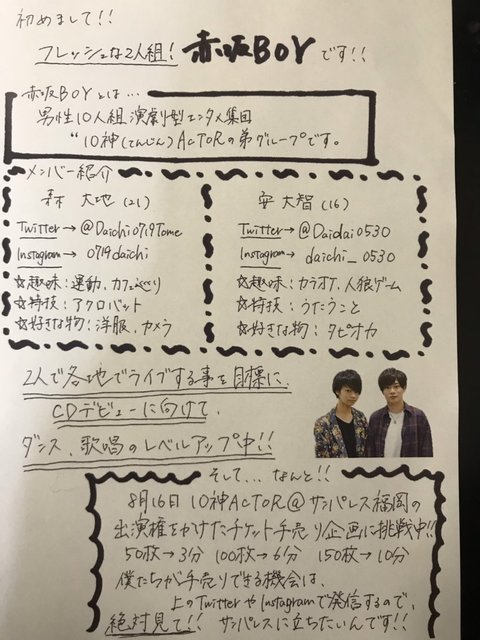 初めまして!!
フレッシュな2人組! 赤坂BOY です!!
赤坂BOYとは…
男性10人組演劇型エンタメ集団
"10神(てんじん)ACTORの弟グループです。
メンバー紹介
森 大地 (21)
Twitter→@Daichi0719Tome
Instagram→ 0719daichi
☆趣味:運動、カフェ巡り
☆特技:アクロバット
☆好きな物:洋服、カメラ
安 大智 (16)
Twitter→@Daidai0530
Instagram→ daichi_0530
☆趣味:カラオケ、人狼ゲーム
☆特技:うたうこと
☆好きな物:タピオカ
2人で各地でライブする事を目標に、
CDデビューに向けて、
ダンス、歌唱のレベルアップ中!!
そして…なんと!!
8月16日 10神ACTOR@サンパレス福岡の
出演権をかけたチケット手売り企画に挑戦中!!
50枚→3分 100枚→6分 150枚→10分
僕たちが手売りできる機会は、
上のTwitterやInstagramで発信するので、
絶対見て!! サンパレスに立ちたいんです!!